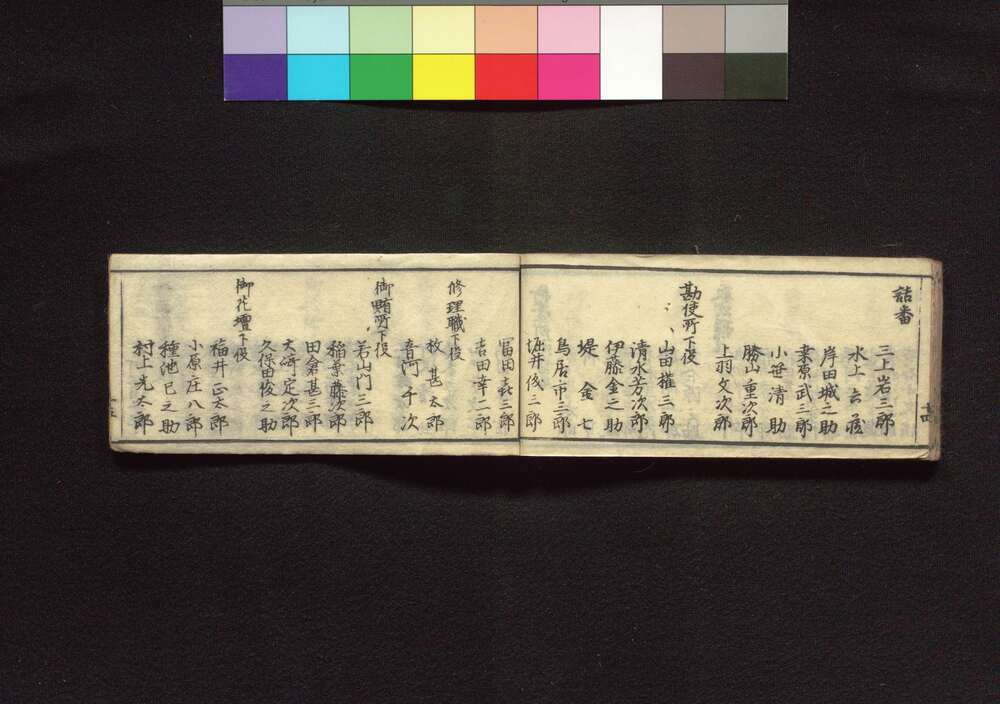 詰番
三上岩三郎
水上吉蔵
岸田城之助
桒原武三郎
小笹清助
勝山重次郎
上羽文次郎
勘使所下役
山田権三郎
清水芳次郎
伊藤金之助
堤金七
鳥居市三郎
堀井俊三郎
冨田㐂三郎
吉田幸二郎
修理職下役
枚甚太郎
音河千次
御賄所下役
若山門三郎
稲葉藤次郎
田倉甚三郎
大崎定次郎
久保田俊之助
御花壇下役
福井正太郎
小原庄八郎
種池巳之助
村上光太郎